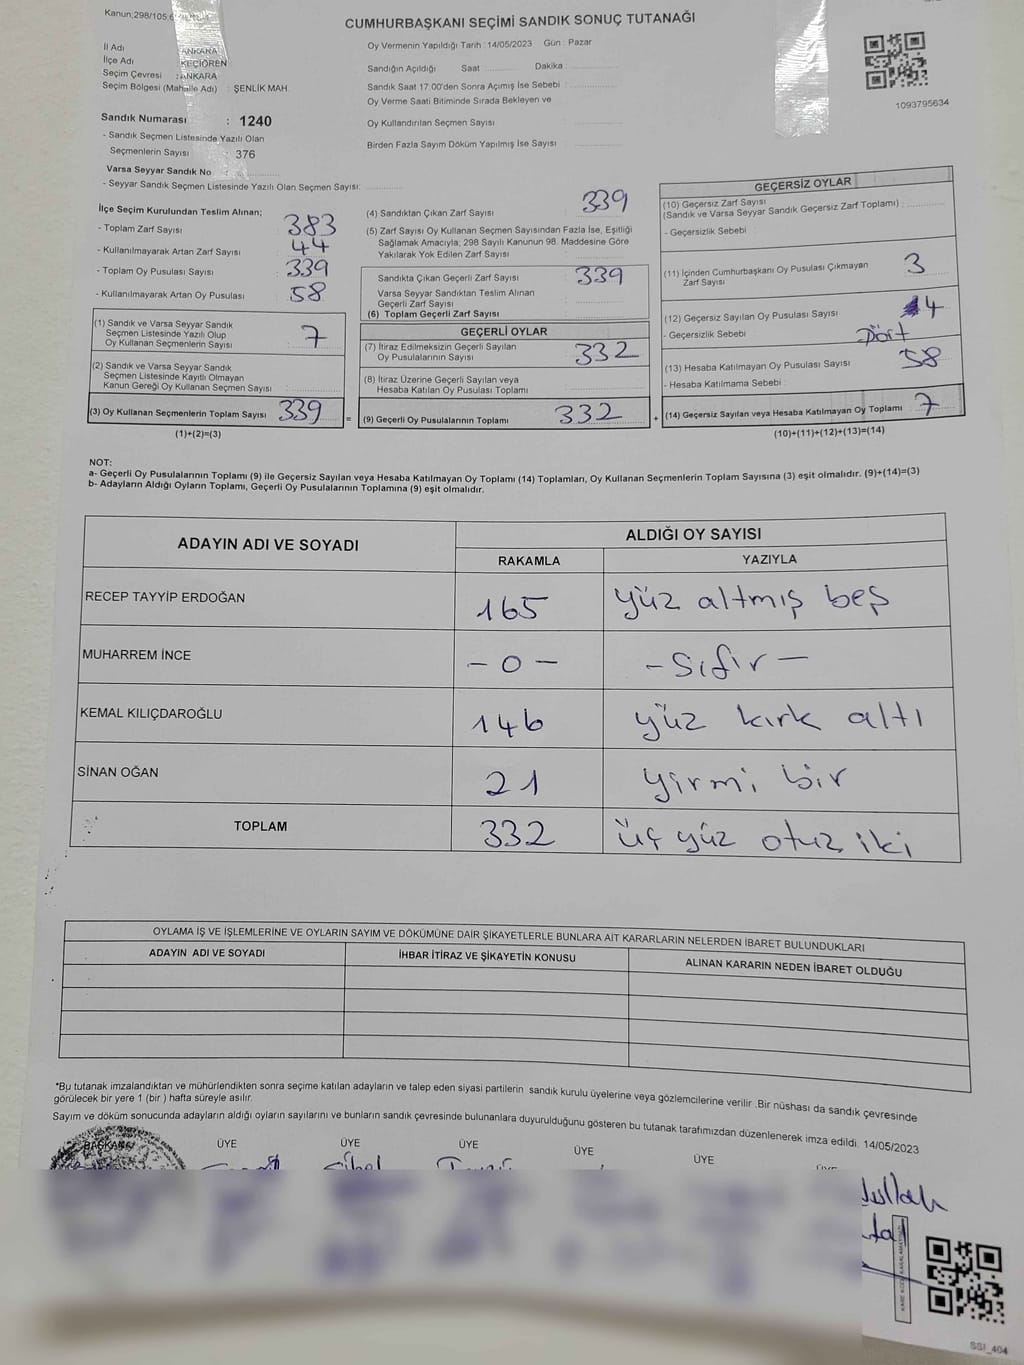 Kanun;298/105
CUMHURBAŞKANI SEÇİMİ SANDIK SONUÇ TUTANAĞI
İl Adı : ANKARA
İlçe Adı : KEÇİÖREN
Seçim Çevresi : ANKARA
Seçim Bölgesi (Mahalle Adı) : ŞENLİK MAH.
Oy Vermenin Yapıldığı Tarih : 14/05/2023 Gün : Pazar
Sandığın Açıldığı Saat Dakika
Sandık Saat 17:00'den Sonra Açımış İse Sebebi :
Oy Verme Saati Bitiminde Sırada Bekleyen ve
Oy Kullandırılan Seçmen Sayısı
Birden Fazla Sayım Döküm Yapılmış İse Sayısı
1093795634
Sandık Numarası : 1240
- Sandık Seçmen Listesinde Yazılı Olan
Seçmenlerin Sayısı : 376
Varsa Seyyar Sandık No
- Seyyar Sandık Seçmen Listesinde Yazılı Olan Seçmen Sayısı:
İlçe Seçim Kurulundan Teslim Alınan;
- Toplam Zarf Sayısı : 383
- Kullanılmayarak Artan Zarf Sayısı : 44
- Toplam Oy Pusulası Sayısı : 339
- Kullanılmayarak Artan Oy Pusulası : 58
(1) Sandık ve Varsa Seyyar Sandık
Seçmen Listesinde Yazılı Olup
Oy Kullanan Seçmenlerin Sayısı : 7
(2) Sandık ve Varsa Seyyar Sandık
Seçmen Listesinde Kayıtlı Olmayan
Kanun Gereği Oy Kullanan Seçmen Sayısı :
(3) Oy Kullanan Seçmenlerin Toplam Sayısı : 339 =
(1)+(2)=(3)
(4) Sandıktan Çıkan Zarf Sayısı : 339
(5) Zarf Sayısı Oy Kullanan Seçmen Sayısından Fazla İse, Eşitliği
Sağlamak Amacıyla; 298 Sayılı Kanunun 98. Maddesine Göre
Yakılarak Yok Edilen Zarf Sayısı
Sandıkta Çıkan Geçerli Zarf Sayısı : 339
Varsa Seyyar Sandıktan Teslim Alınan
Geçerli Zarf Sayısı
(6) Toplam Geçerli Zarf Sayısı
GEÇERLİ OYLAR
(7) İtiraz Edilmeksizin Geçerli Sayılan
Oy Pusulalarının Sayısı : 332
(8) İtiraz Üzerine Geçerli Sayılan veya
Hesaba Katılan Oy Pusulası Toplamı
(9) Geçerli Oy Pusulalarının Toplamı : 332 +
GEÇERSİZ OYLAR
(10) Geçersiz Zarf Sayısı
(Sandık ve Varsa Seyyar Sandık Geçersiz Zarf Toplamı) :
- Geçersizlik Sebebi :
(11) İçinden Cumhurbaşkanı Oy Pusulası Çıkmayan
Zarf Sayısı : 3
(12) Geçersiz Sayılan Oy Pusulası Sayısı : 4
- Geçersizlik Sebebi : Dört
(13) Hesaba Katılmayan Oy Pusulası Sayısı : 58
- Hesaba Katılmama Sebebi :
(14) Geçersiz Sayılan veya Hesaba Katılmayan Oy Toplamı : 7
(10)+(11)+(12)+(13)=(14)
NOT:
a- Geçerli Oy Pusulalarının Toplamı (9) ile Geçersiz Sayılan veya Hesaba Katılmayan Oy Toplamı (14) Toplamları, Oy Kullanan Seçmenlerin Toplam Sayısına (3) eşit olmalıdır. (9)+(14)=(3)
b- Adayların Aldığı Oyların Toplamı, Geçerli Oy Pusulalarının Toplamına (9) eşit olmalıdır.
ADAYIN ADI VE SOYADI
ALDIĞI OY SAYISI
RAKAMLA YAZIYLA
RECEP TAYYİP ERDOĞAN 165 yüz altmış beş
MUHARREM İNCE - 0 - - Sıfır -
KEMAL KILIÇDAROĞLU 146 yüz kırk altı
SİNAN OĞAN 21 yirmi bir
TOPLAM 332 üç yüz otuz iki
OYLAMA İŞ VE İŞLEMLERİNE VE OYLARIN SAYIM VE DÖKÜMÜNE DAİR ŞİKAYETLERLE BUNLARA AİT KARARLARIN NELERDEN İBARET BULUNDUKLARI
ADAYIN ADI VE SOYADI İHBAR İTİRAZ VE ŞİKAYETİN KONUSU ALINAN KARARIN NEDEN İBARET OLDUĞU
*Bu tutanak imzalandıktan ve mühürlendikten sonra seçime katılan adayların ve talep eden siyasi partilerin sandık kurulu üyelerine veya gözlemcilerine verilir .Bir nüshası da sandık çevresinde
görülecek bir yere 1 (bir ) hafta süreyle asılır.
Sayım ve döküm sonucunda adayların aldığı oyların sayılarını ve bunların sandık çevresinde bulunanlara duyurulduğunu gösteren bu tutanak tarafımızdan düzenlenerek imza edildi. 14/05/2023
BAŞKAN ÜYE ÜYE ÜYE ÜYE ÜYE
SSI_404